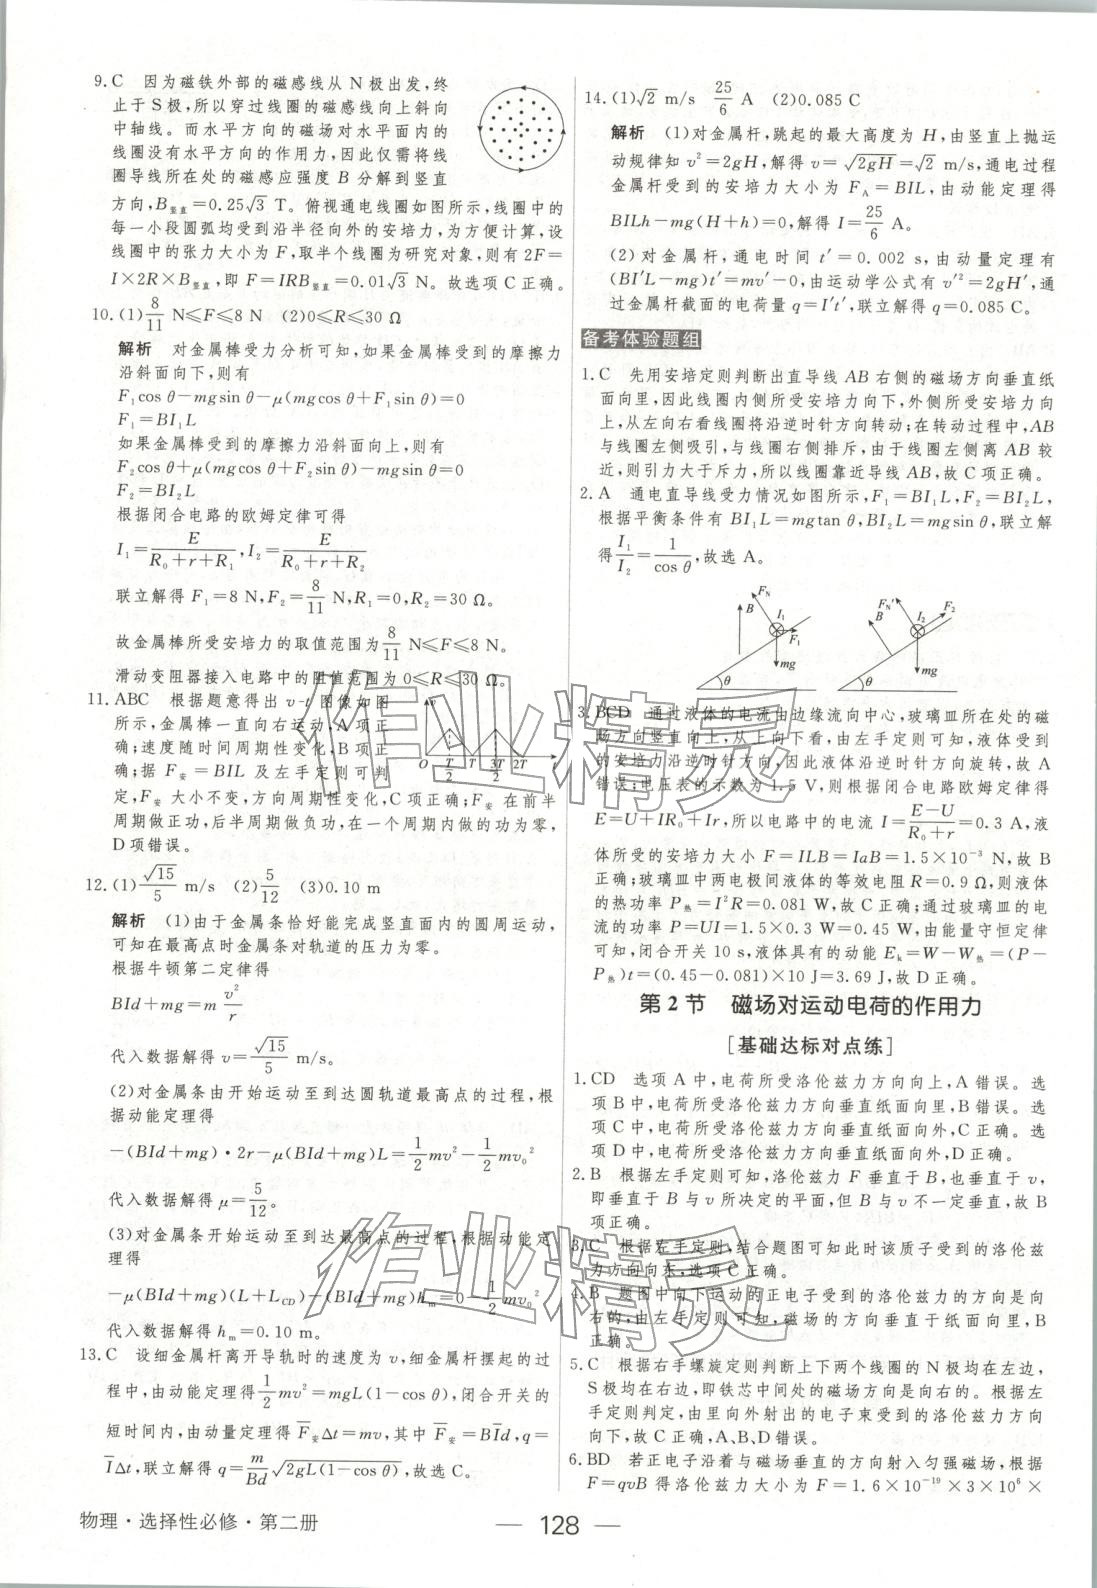 9. C　因为磁铁外部的磁感线从 N 极出发,终
止于 S 极,所以穿过线圈的磁感线向上斜向
中轴线。而水平方向的磁场对水平面内的
线圈没有水平方向的作用力,因此仅需将线
圈导线所在处的磁感应强度 B 分解到竖直
方向,B竖直=0.25√3 T。俯视通电线圈如图所示,线圈中的
每一小段圆弧均受沿半径向外的安培力,为方便计算,设
线圈中的张力大小为 F,取半个线圈为研究对象,则有 2F=
I×2R×B竖直,即 F=IRB竖直=0.01√3 N。故选项 C 正确。
10. (1) 8/11 N≤F≤8 N　(2)0≤R≤30 Ω
解析　对金属棒受力分析可知,如果金属棒受到的摩擦力
沿斜面向下,则有
F₁cos θ−mgsin θ−μ(mgcos θ+F₁sin θ)=0
F₁=BI₁L
如果金属棒受到的摩擦力沿斜面向上,则有
F₂cos θ+μ(mgcos θ+F₂sin θ)−mgsin θ=0
F₂=BI₂L
根据闭合电路的欧姆定律可得
I₁=E/(R₀+r+R₁),I₂=E/(R₀+r+R₂)
联立解得 F₁=8 N,F₂=8/11 N,R₁=0,R₂=30 Ω。
故金属棒所受安培力的取值范围为 8/11 N≤F≤8 N。
滑动变阻器接入电路中的阻值范围为 0≤R≤30 Ω。
11. ABC　根据题意得出 v-t 图像如图
所示,金属棒一直向右运动,A 项正
确;速度随时间周期性变化,B 项正
确;据 F安=BIL 及左手定则可判
定,F安 大小不变,方向周期性变化,C 项正确。F安 在前半
周期做正功,后半周期做负功,在一个周期内做的功为零,
D 项错误。
v
O T/2 T 3T/2 2T t
12. (1) √15/5 m/s　(2) 5/12　(3)0.10 m
解析　(1)由于金属条恰好能完成竖直面内的圆周运动,
可知在最高点时金属条对轨道的压力为零。
根据牛顿第二定律得
BId+mg=m v²/r
代入数据解得 v=√15/5 m/s。
(2)对金属条由开始运动至到达圆轨道最高点的过程,根
据动能定理得
−(BId+mg)·2r−μ(BId+mg)L=1/2 mv²−1/2 mv₀²
代入数据解得 μ=5/12。
(3)对金属条由开始运动至到达最高点的过程,根据动能定
理得
−μ(BId+mg)(L+L_CD)−(BId+mg)hₘ=0−1/2 mv₀²
代入数据解得 hₘ=0.10 m。
13. C　设细金属杆离开导轨时的速度为 v,细金属杆摆起的过
程中,由动能定理得 1/2 mv²=mgL(1−cos θ),闭合开关的
短时间内,由动量定理得 F̄安Δt=mv,其中 F̄安=BĪd,q=
ĪΔt,联立解得 q=m/(Bd) √(2gL(1−cos θ)),故选 C。
14. (1)√2 m/s　25/6 A　(2)0.085 C
解析　(1)对金属杆,跳起的最大高度为 H,由竖直上抛运
动规律知 v²=2gH,解得 v=√(2gH)=√2 m/s,通电过程
金属杆受到的安培力大小为 F_A=BIL,由动能定理得
BILh−mg(H+h)=0,解得 I=25/6 A。
(2)对金属杆,通电时间 t′=0.002 s,由动量定理有
(BI′L−mg)t′=mv′−0,由运动学公式有 v′²=2gH′,通
过金属杆截面的电荷量 q=I′t′,联立解得 q=0.085 C。
备考体验题组
1. C　先用安培定则判断出直导线 AB 右侧的磁场方向垂直纸
面向里,因此线圈内侧所受安培力向下,外侧所受安培力向
上,从左向右看线圈将沿逆时针方向转动;在转动过程中,AB
与线圈左侧吸引,与线圈右侧排斥,由于线圈左侧离 AB 较
近,则引力大于斥力,所以线圈靠近导线 AB,故 C 项正确。
2. A　通电直导线受力情况如图所示,F₁=BI₁L,F₂=BI₂L,
根据平衡条件有 BI₁L=mgtan θ,BI₂L=mgsin θ,联立解
得 I₁/I₂=1/cos θ,故选 A。
B F_N I₁ F₁ mg θ
B F_N′ I₂ F₂ mg θ
3. BCD　通过液体的电流由边缘流向中心,玻璃皿所在处的磁
场方向竖直向上,从上向下看,由左手定则可知,液体受到
的安培力沿逆时针方向,因此液体沿逆时针方向旋转,故 A
错误;电压表的示数为 1.5 V,则根据闭合电路欧姆定律得
E=U+IR₀+Ir,所以电路中的电流 I=(E−U)/(R₀+r)=0.3 A,液
体所受的安培力大小 F=ILB=IaB=1.5×10⁻³ N,故 B
正确;玻璃皿中两电极间液体的等效电阻 R=0.9 Ω,则液体
的热功率 P热=I²R=0.081 W,故 C 正确;通过玻璃皿的电
流的功率 P=UI=1.5×0.3 W=0.45 W,由能量守恒定律
可知,闭合开关 10 s,液体具有的动能 Eₖ=W−W热=(P−
P热)t=(0.45−0.081)×10 J=3.69 J,故 D 正确。
第 2 节　磁场对运动电荷的作用力
[基础达标对点练]
1. CD　选项 A 中,电荷所受洛伦兹力方向向上,A 错误。选
项 B 中,电荷所受洛伦兹力方向垂直纸面向里,B 错误。选
项 C 中,电荷所受洛伦兹力方向垂直纸面向外,C 正确。选
项 D 中,电荷所受洛伦兹力方向垂直纸面向外,D 正确。
2. B　根据左手定则可知,洛伦兹力 F 垂直于 B,也垂直于 v,
即垂直于 B 与 v 所决定的平面,但 B 与 v 不一定垂直,故 B
项正确。
3. C　根据左手定则,结合题图可知此时该质子受到的洛伦兹
力方向向东,选项 C 正确。
4. B　题图中向下运动的正电子受到的洛伦兹力的方向是向
右的,由左手定则可知,磁场的方向垂直于纸面向里,B
正确。
5. C　根据右手螺旋定则判断上下两个线圈的 N 极均在左边,
S 极均在右边,即铁芯中间处的磁场方向是向右的。根据左
手定则判定,由里向外射出的电子束受到的洛伦兹力方向
向下,故 C 正确,A、B、D 错误。
6. BD　若正电子沿着与磁场垂直的方向射入匀强磁场,根据
F=qvB 得洛伦兹力大小为 F=1.6×10⁻¹⁹×3×10⁶×
物理·选择性必修·第二册
— 128 —
作业精灵
作业精灵